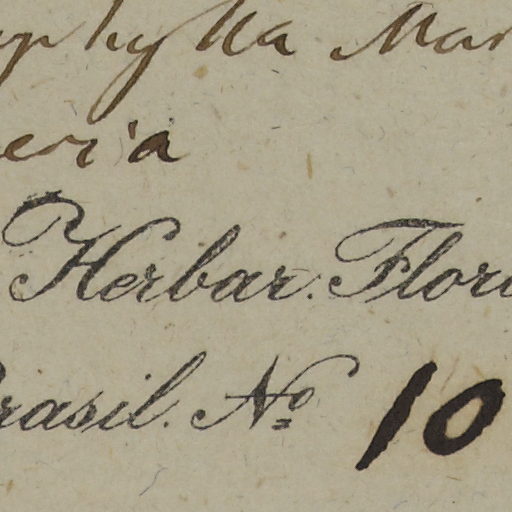 phylla Mar
eria
Herbar. Flor
rasil. No 10